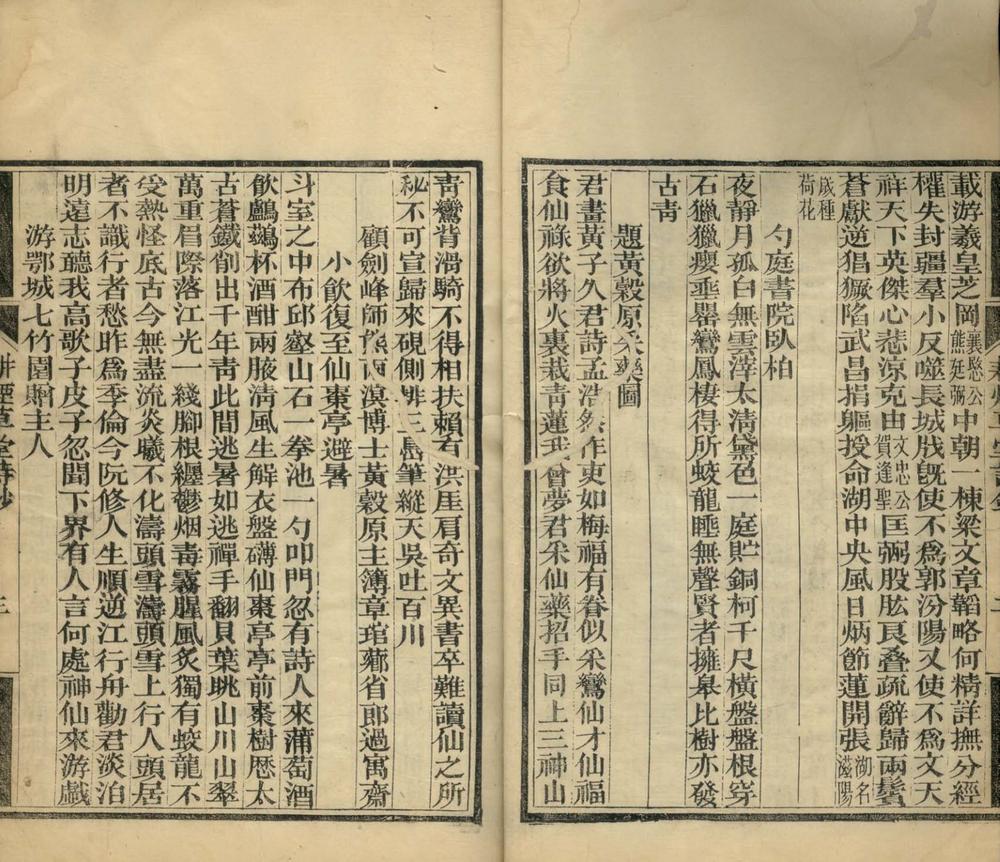 載游羲皇芝岡襄愍公熊廷弼中朝一棟梁文章韜略何精詳撫分經
權失封疆羣小反噬長城戕旣使不爲郭汾陽又使不爲文天
祥天下英傑心悲凉克由文忠公賀逢聖匡弼股肱艮疊疏辭歸兩鬢
蒼獻逆猖獗陷武昌捐軀授命湖中央風日炳節蓮開張湖名滋陽
歲種荷花
勺庭書院臥柏
夜靜月孤白無雲滓太淸黛色一庭貯銅柯千尺橫盤盤根穿
石獵獵癭垂罌鸞鳳棲得所蛟龍睡無聲賢者擁皋比樹亦發
古靑
題黃穀原采藥圖
君畫黃子久君詩孟浩然作吏如梅福有眷似采鸞仙才仙福
食仙祿欲將火裏栽靑蓮我曾夢君采仙藥招手同上三神山
靑鸞背滑騎不得相扶賴有洪厓肩奇文異書卒難讀仙之所
秘不可宣歸來硯側排三島筆縱天吳吐百川
顧劍峰師熊兩溟博士黃穀原主簿章琯薌省郎過寓齋
小飮復至仙棗亭避暑
斗室之中布邱壑山石一拳池一勺叩門忽有詩人來蒲萄酒
飮鸕鷀杯酒酣兩腋淸風生解衣盤礴仙棗亭亭前棗樹歷太
古蒼鐵削出千年靑此間逃暑如逃禪手翻貝葉眺山川山翠
萬重眉際落江光一綫腳根纒鬱烟毒霧腥風炙獨有蛟龍不
受熱怪底古今無盡流炎曦不化濤頭雪濤頭雪上行人頭居
者不識行者愁昨爲季倫今阮修人生順逆江行舟勸君淡泊
明遠志聽我高歌子皮子忽聞下界有人言何處神仙來游戲
游鄂城七竹園贈主人